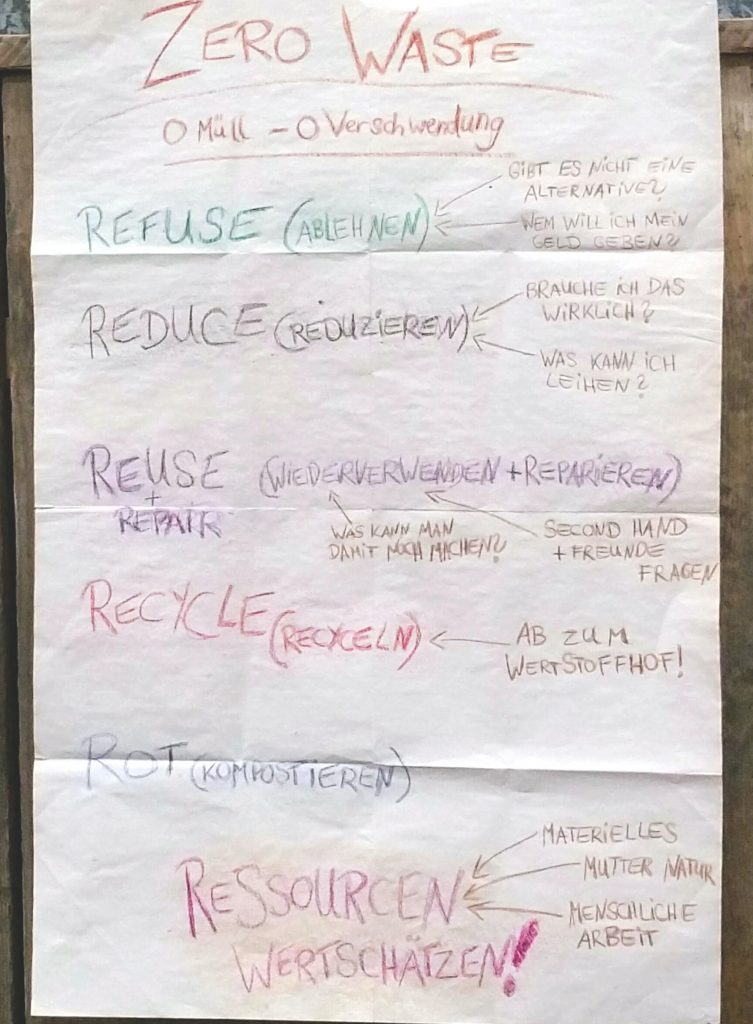 ZERO WASTE
0 Müll - 0 Verschwendung
REFUSE (ABLEHNEN)
GIBT ES NICHT EINE
ALTERNATIVE?
WEM WILL ICH MEIN
GELD GEBEN?
REDUCE (REDUZIEREN)
BRAUCHE ICH DAS
WIRKLICH?
WAS KANN ICH
LEIHEN?
REUSE (WIEDERVERWENDEN + REPARIEREN)
+
REPAIR
WAS KANN MAN
DAMIT NOCH MACHEN?
SECOND HAND
+ FREUNDE
FRAGEN
RECYCLE (RECYCELN)
AB ZUM
WERTSTOFFHOF!
ROT (KOMPOSTIEREN)
RESSOURCEN
WERTSCHÄTZEN!
MATERIELLES
MUTTER NATUR
MENSCHLICHE
ARBEIT